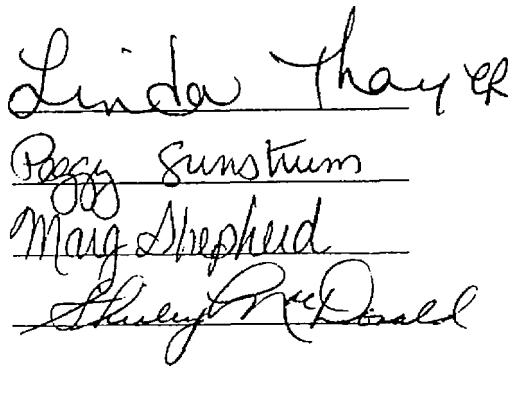 Linda Thayer
Peggy Sunstrum
Marg Shepherd
Shirley MacDonald